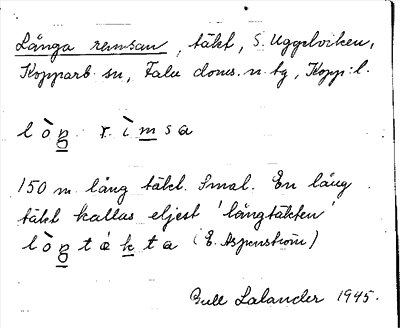 Långa remsan, täkt, S. Uggelviken,
Kopparb. sn, Falu doms. n. tg, Kopp:l.
lò̀ŋ rìmsa
150 m lång täkt. Smal. En lång
täkt kallas eljest 'långtäkten'
lòŋtákta (E. Aspenström)
Lalander 1945.